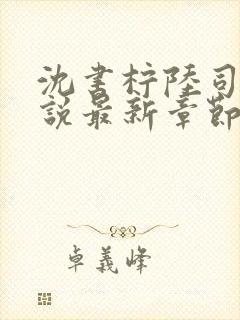 沈書柠陸司
說最新章節
卓義峰